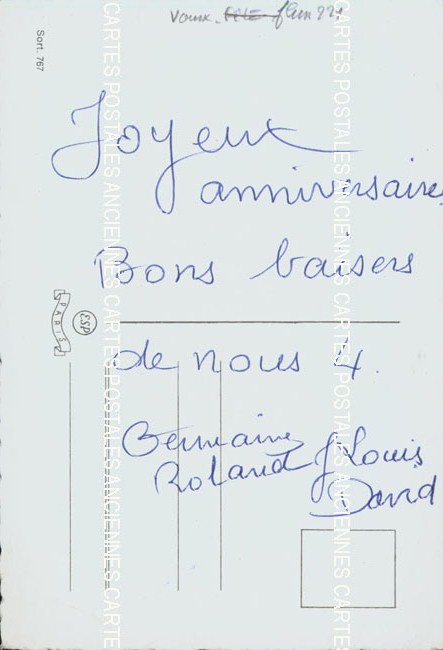 Voeux. fleurs
Sort. 767
Joyeux
anniversaire
Bons baisers
PARIS
ESP
de nous 4.
Germaine
Roland J Louis
David
CARTES POSTALES ANCIENNES CARTES POSTALES ANCIENNES CARTES
CARTES POSTALES ANCIENNES CARTES POSTALES ANCIENNES CARTE